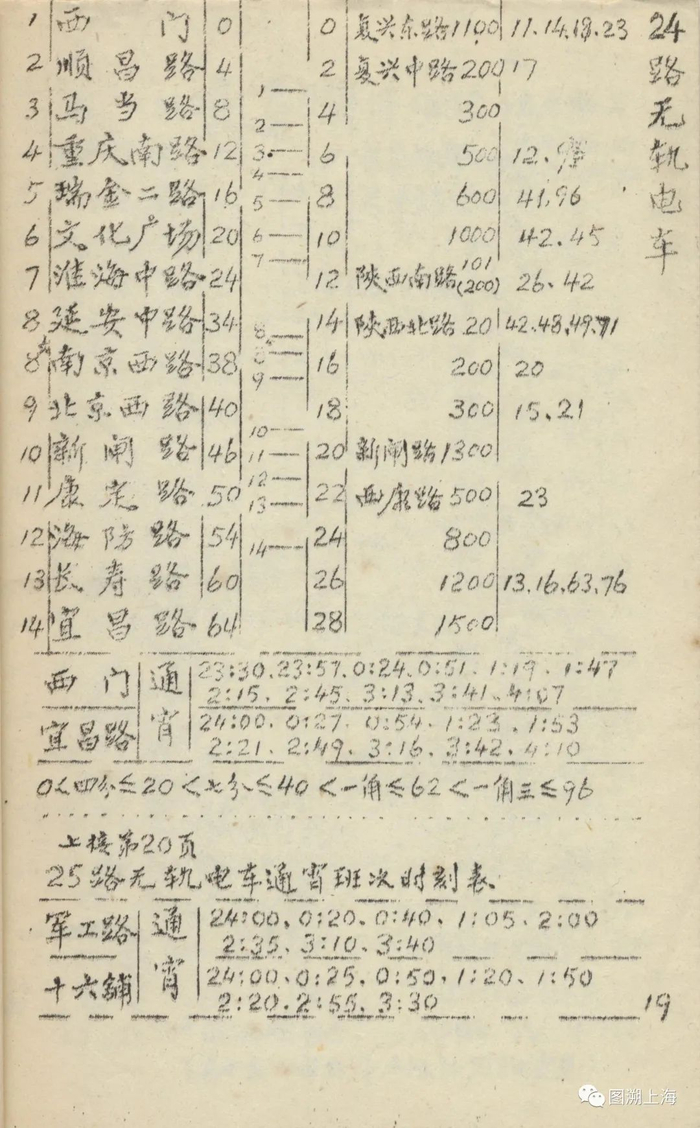 1 西门 0 0 复兴东路1100 11.14.18.23
2 顺昌路 4 2 复兴中路200 17
3 马当路 8 4 300
4 重庆南路 12 6 500 12.
5 瑞金二路 16 8 600 41.96
6 文化广场 20 10 1000 42.45
7 淮海中路 24 12 陕西南路101(200) 26.42
8 延安中路 34 14 陕西北路20 42.48.49.71
8 南京西路 38 16 200 20
9 北京西路 40 18 300 15.21
10 新闸路 46 20 新闸路1300
11 康定路 50 22 西康路500 23
12 海防路 54 24 800
13 长寿路 60 26 1200 13.16.63.76
14 宜昌路 64 28 1500
1
2
3
4
5
6
7
8
8
9
10
11
12
13
14
24路无轨电车
西门 通宵 23:30.23:57.0:24.0:51.1:19.1:47
2:15.2:45.3:13.3:41.4:07
宜昌路 24:00.0:27.0:54.1:23.1:53
2:21.2:49.3:16.3:42.4:10
0<四分≤20<七分≤40<一角≤62<一角三≤96
上接第20页
25路无轨电车通宵班次时刻表
军工路 通宵 24:00、0:20、0:40、1:05、2:00
2:35、3:10、3:40
十六铺 24:00、0:25、0:50、1:20、1:50
2:20、2:55、3:30
19
图溯上海